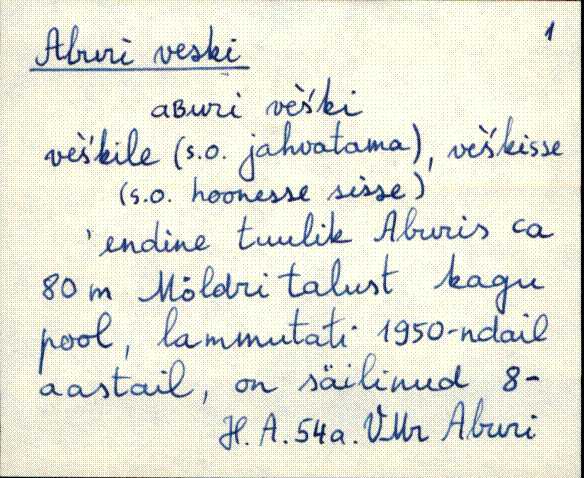 1
Aburi veski
aBuri vèški
vèškile (s.o. jahvatama), vèškisse
(s.o. hoonesse sisse)
'endine tuulik Aburis ca
80 m Möldri talust kagu
pool, lammutati 1950-ndail
aastail, on säilinud 8-
H. A. 54a. VMr Aburi